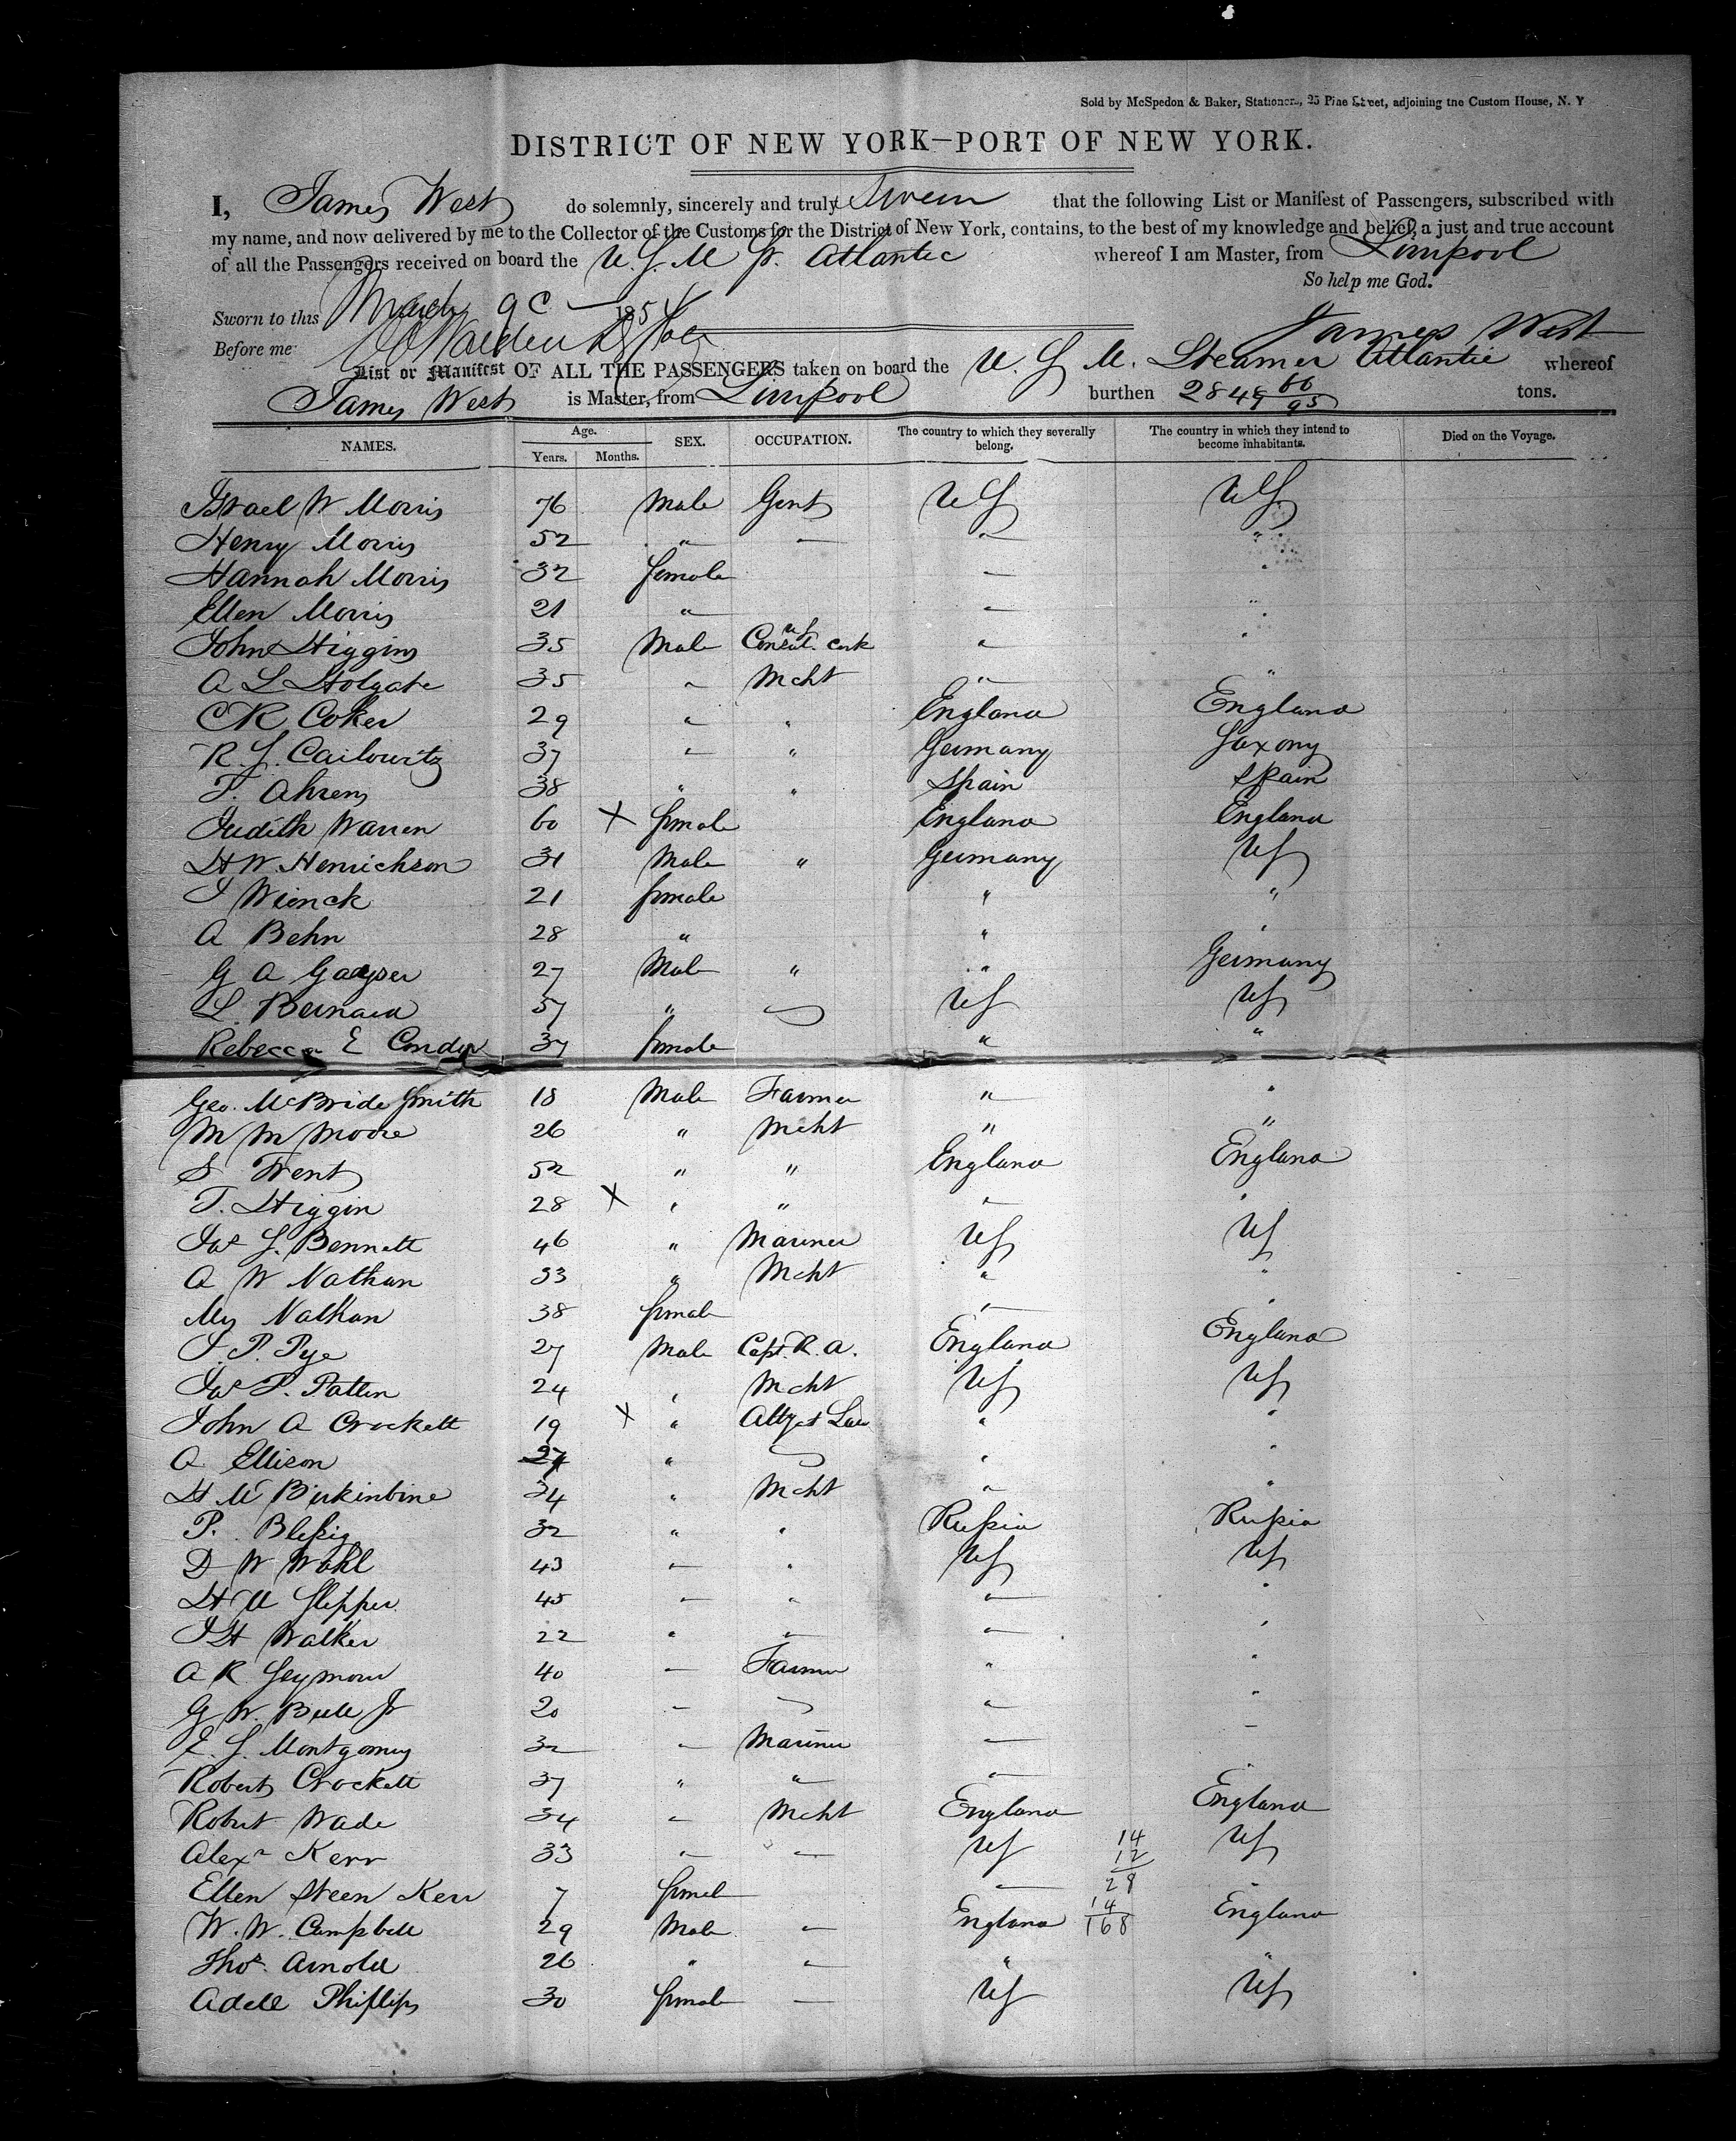 Sold by McSpedon & Baker, Stationers, 25 Pine Street, adjoining the Custom House, N. Y
DISTRICT OF NEW YORK—PORT OF NEW YORK.
I, James West do solemnly, sincerely and truly Swear that the following List or Manifest of Passengers, subscribed with
my name, and now delivered by me to the Collector of the Customs for the District of New York, contains, to the best of my knowledge and belief, a just and true account
of all the Passengers received on board the U.S.M St. Atlantic whereof I am Master, from Liverpool
So help me God.
Sworn to this March 9 1854
Before me James West
List or Manifest OF ALL THE PASSENGERS taken on board the U. S M. Steamer Atlantic whereof
James West is Master, from Liverpool burthen 2849 66/95 tons.
NAMES. Age. Years. Months. SEX. OCCUPATION. The country to which they severally belong. The country in which they intend to become inhabitants. Died on the Voyage.
Israel W Morris 76 Male Gent US US
Henry Morris 52 " — " "
Hannah Morris 32 female — "
Ellen Morris 21 " " "
John Higgins 35 Male US Consul. Cork " "
A L Holgate 35 " Mcht " "
C R Coker 29 " " England England
R. S. Cailowitz 37 " " Germany Saxony
T. Ahrens 38 " " Spain Spain
Judith Warren 60 X female England England
H W. Henrichson 31 Male " Germany US
J Wienck 21 female " "
A Behn 28 " " "
G A Gayser 27 Male " " Germany
L. Bernard 57 " US US
Rebecca E Conder 37 female " "
Geo. McBride Smith 18 Male Farmer " "
M M Moore 26 " Mcht " "
S Trent 52 " " England England
T. Higgin 28 X " " " "
Jas S. Bennett 46 " Mariner US US
A W Nathan 33 " Mcht " "
Mrs Nathan 38 female " "
J. P. Pye 27 Male Capt. R. A. England England
Jas P. Patten 24 " Mcht US US
John A Crockett 19 X " Atty at Law " "
A. Ellison 27 " " "
H M Birkinbine 34 " Mcht " "
P. Bleßig 32 " " Rußia Rußia
D W Wahl 43 " " US US
H M Slepper 45 " " " "
J H Walker 22 " " " "
A R Seymour 40 " Farmer " "
G W. Bull Jr 20 " " "
E. S. Montgomery 32 " Mariner " "
Robert Crockett 37 " " " "
Robert Wade 34 " Mcht England England
Alexr Kerr 33 " — US US
14
12
28
Ellen Steen Kerr 7 femal " "
W. W. Campbell 29 Male " England England
14
168
Thos. Arnold 26 " " " "
Adell Phillips 30 female — US US